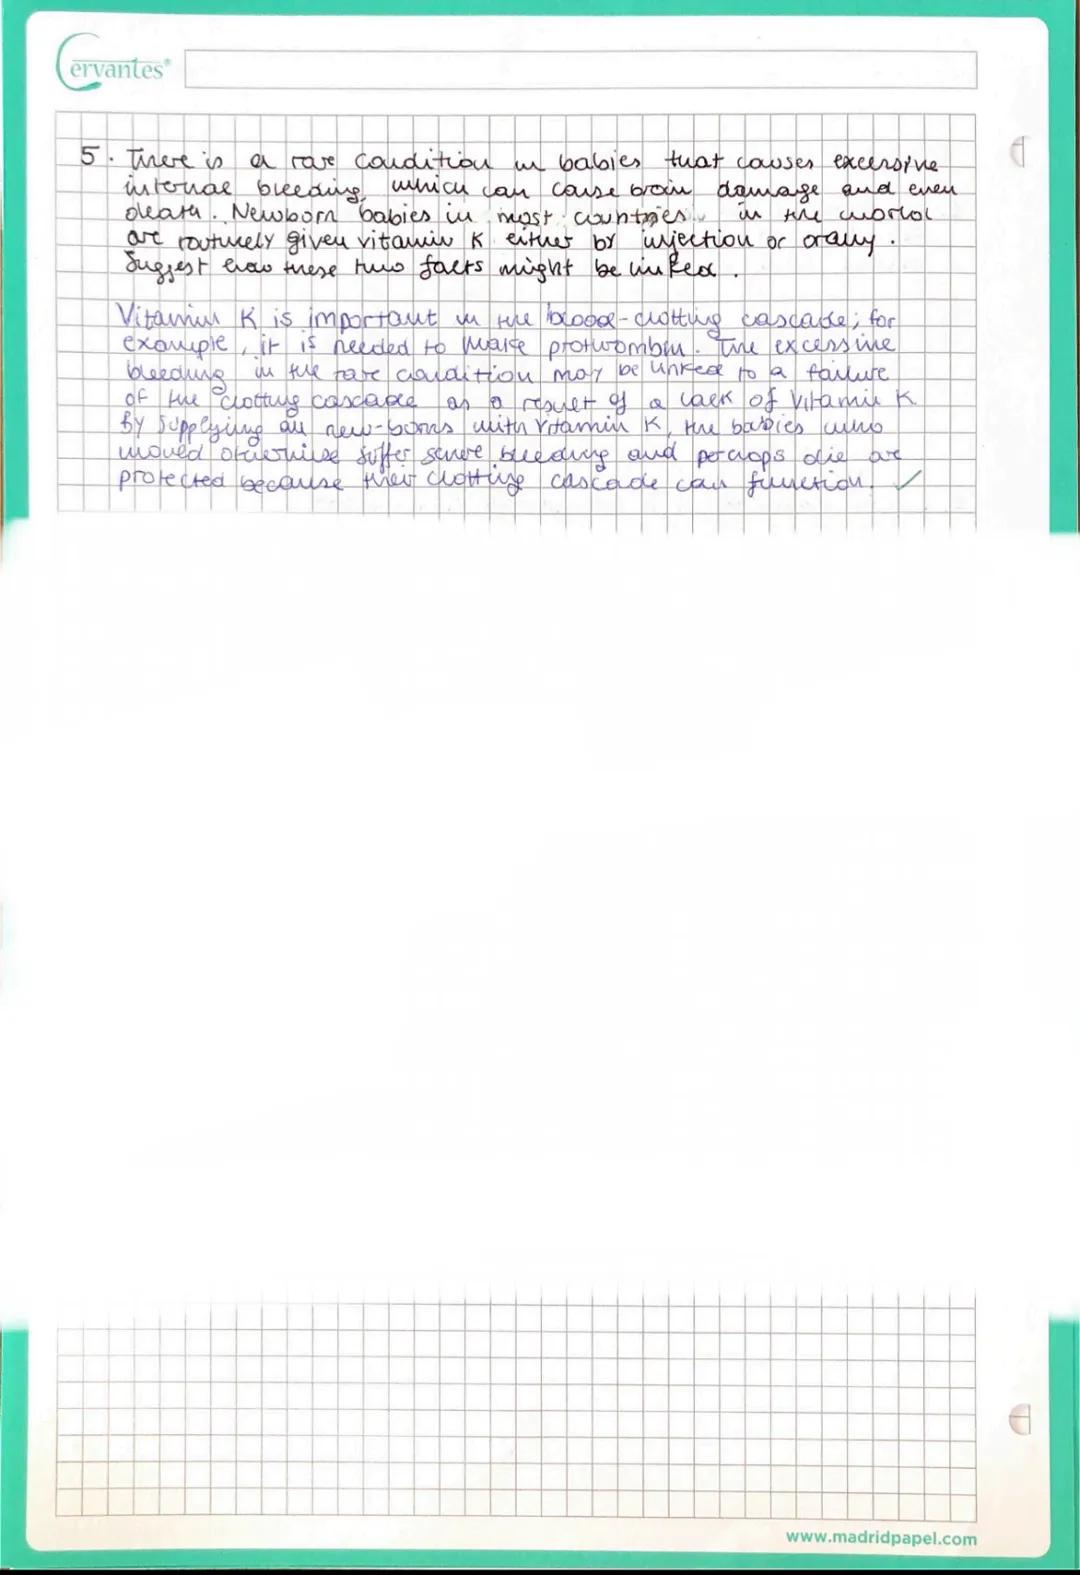 Cervantes®
5. There is a rare condition in babies that causes excessive
internal bleeding, which can cause brain damage and even
death. Newborn babies in most countries in the world
are routinely given vitamin K either by injection or orally.
Suggest how these two facts might be linked.
Vitamin K is important in the blood-clotting cascade; for
example, it is needed to make prothrombin. The excessive
bleeding in the rare condition may be linked to a failure
of the clotting cascade as a result of a lack of vitamin K.
By supplying all new-borns with vitamin K, the babies who
would otherwise suffer severe bleeding and perhaps die are
protected because their clotting cascade can function. ✓
www.madridpapel.com